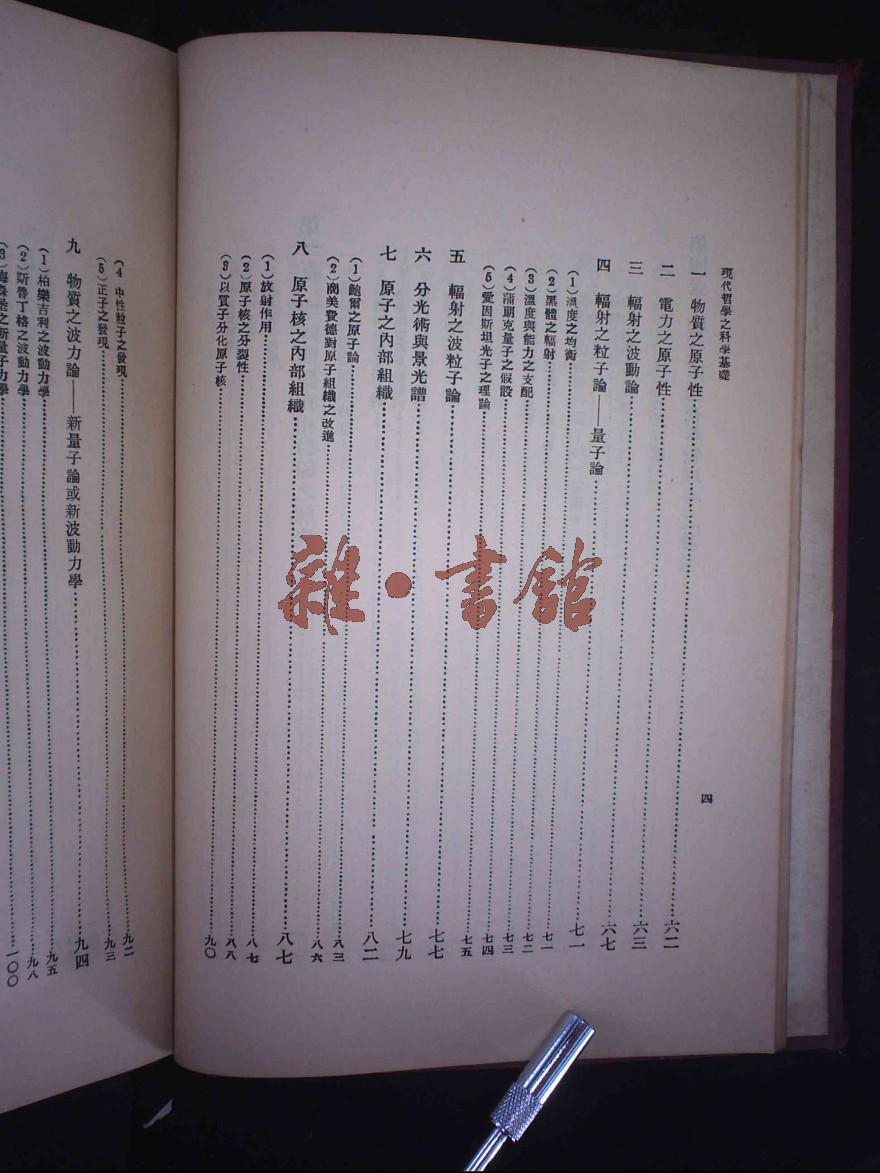 現代哲學之科學基礎
四
一 物質之原子性……六二
二 電力之原子性……六三
三 輻射之波動論……六七
四 輻射之粒子論——量子論……七一
(1)溫度之均衡……七一
(2)黑體之輻射……七二
(3)溫度與能力之支配……七三
(4)蒲朗克量子之假設……七四
(5)愛因斯坦光子之理論……七五
五 輻射之波粒子論……七七
六 分光術與景光譜……七九
七 原子之內部組織……八二
(1)鮑爾之原子論……八三
(2)商美費德對原子組織之改進……八六
八 原子核之內部組織……八七
(1)放射作用……八七
(2)原子核之分裂性……八八
(3)以質子分化原子核……九〇
(4)中性粒子之發現……九二
(5)正子之發現……九三
九 物質之波力論——新量子論或新波動力學……九四
(1)柏樂吉利之波動力學……九五
(2)斯魯丁格之波動力學……九八
之新量子力學……一〇〇
雜·書館